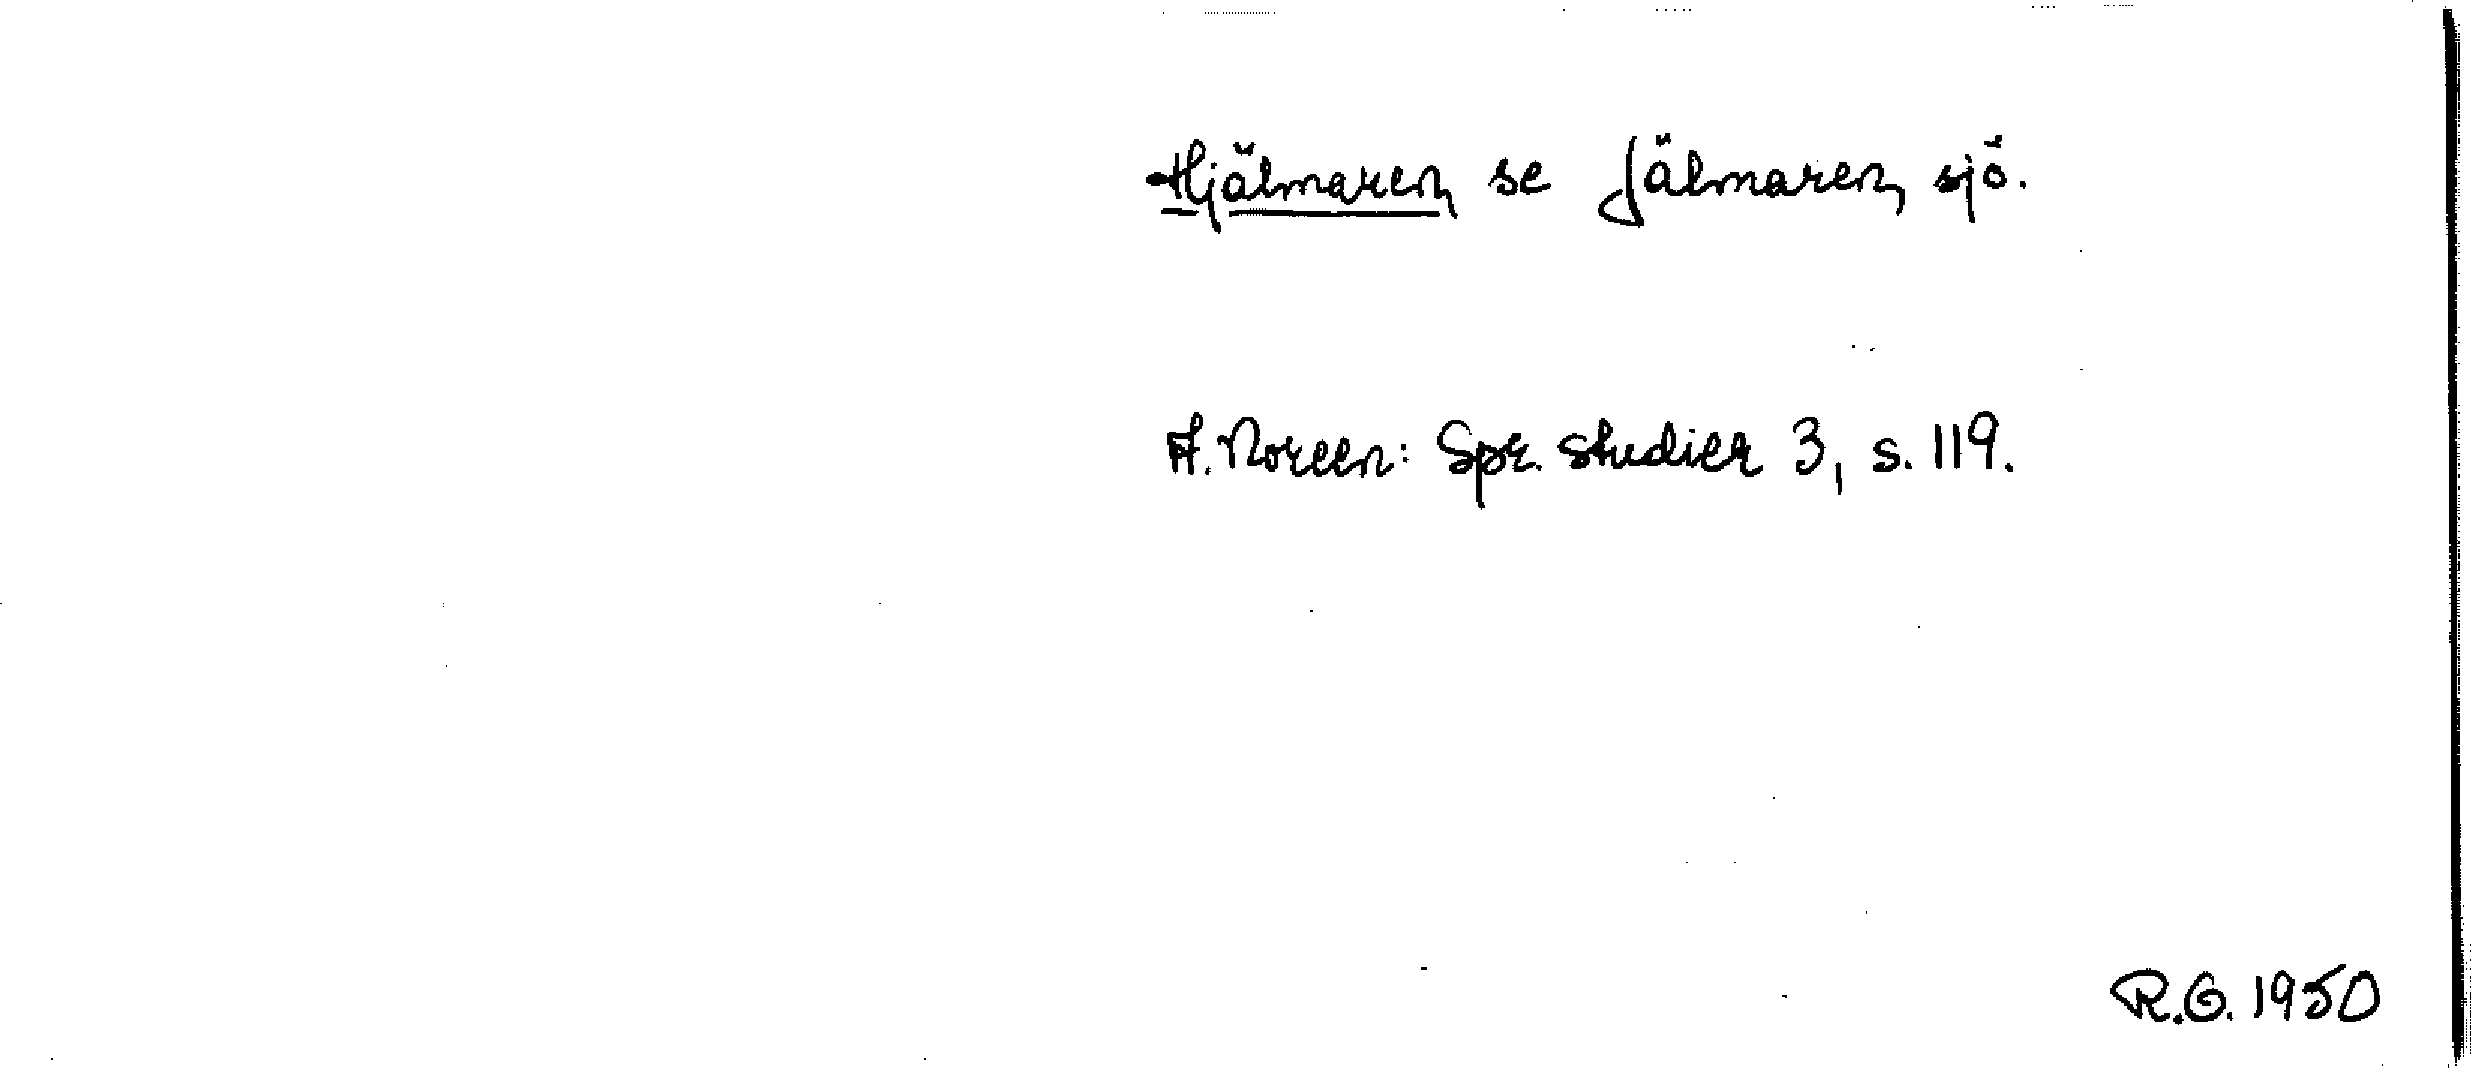 Hjälmaren se Jälmaren, sjö.
A. Noreen: Spr. studier 3, s. 119.
R.G. 1950